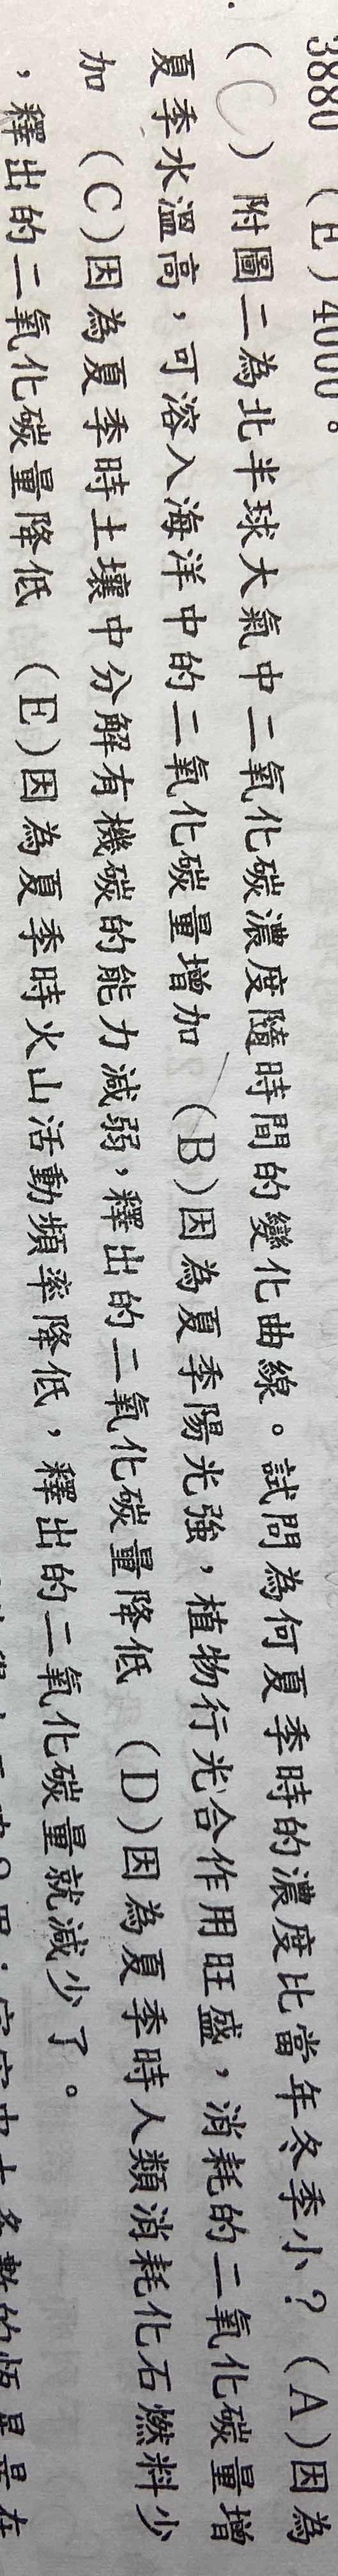 3880 (E)4000。
(C) 附圖二為北半球大氣中二氧化碳濃度隨時間的變化曲線。試問為何夏季時的濃度比當年冬季小? (A)因為
夏季水溫高,可溶入海洋中的二氧化碳量增加 (B)因為夏季陽光強,植物行光合作用旺盛,消耗的二氧化碳量增
加 (C)因為夏季時土壤中分解有機碳的能力減弱,釋出的二氧化碳量降低 (D)因為夏季時人類消耗化石燃料少
,釋出的二氧化碳量降低 (E)因為夏季時火山活動頻率降低,釋出的二氧化碳量就減少了。